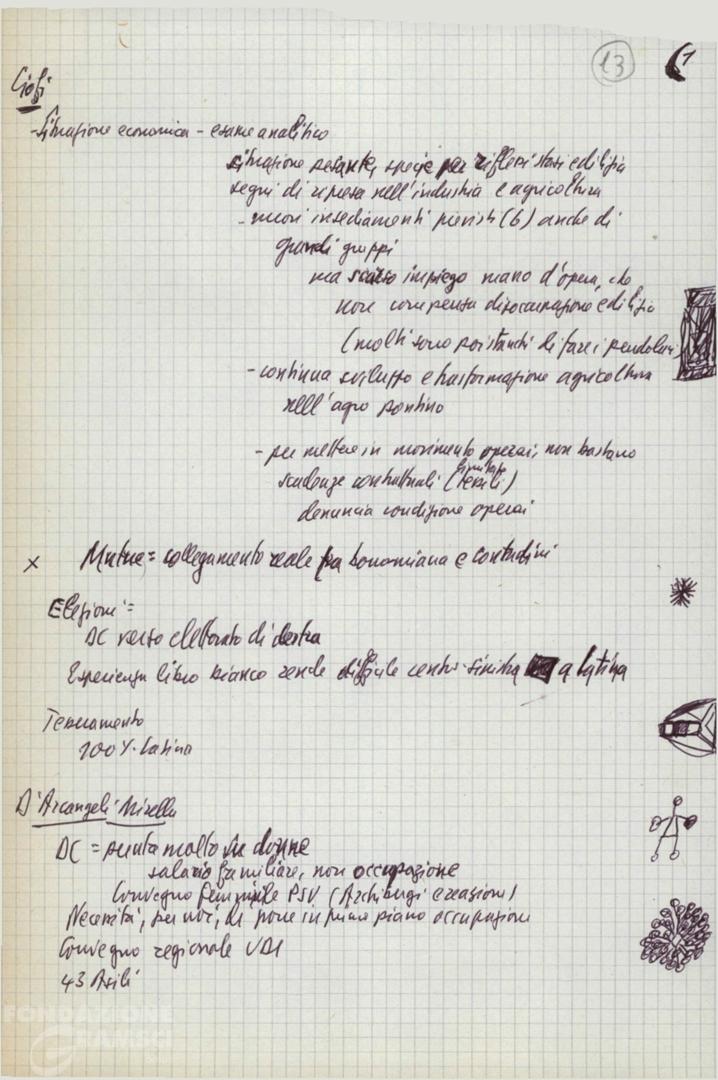 13
Ciofi
- Situazione economica - esame analitico
situazione pesante, specie per riflessi stasi edilizia
segni di ripresa nell'industria e agricoltura
- nuovi insediamenti previsti (6) anche di
grandi gruppi
ma scarso impiego mano d'opera, che
non compensa disoccupazione edilizia
(molti sono poi stanchi di fare i pendolari)
- continua sviluppo e trasformazione agricoltura
nell'agro pontino
- per mettere in movimento operai, non bastano
scadenze contrattuali (tessili)
denuncia condizione operai
x Mutue = collegamento reale fra bonomiana e contadini
Elezioni =
DC verso elettorato di destra
Esperienza libro bianco rende difficile centro-sinistra a Latina
Tesseramento
100% Latina
D'Arcangeli Mirella
DC = punta molto su donne
salario familiare, non occupazione
Convegno femminile PSU (Archibugi e reazioni)
Necessità, per noi, di porre in primo piano occupazione
Convegno regionale UDI
43 Asili
FONDAZIONE
GRAMSCI